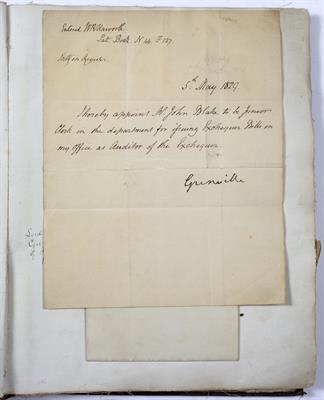 Entered W R Haworth
Patt. Book N 44 F 157.
Fully in Register
5th May 1829.
I hereby appoint Mr. John Blake to be Junior
Clerk in the department for issuing Exchequer Bills in
my Office as Auditor of the Exchequer.
Grenville